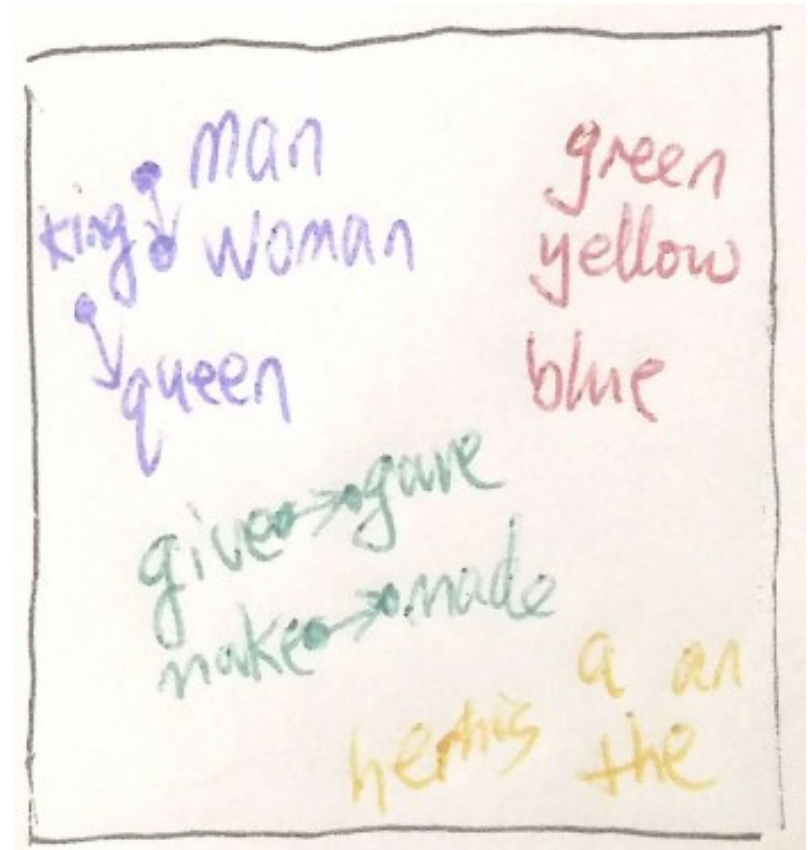 man
king woman
queen
green
yellow
blue
give gave
make made
her his
a an
the